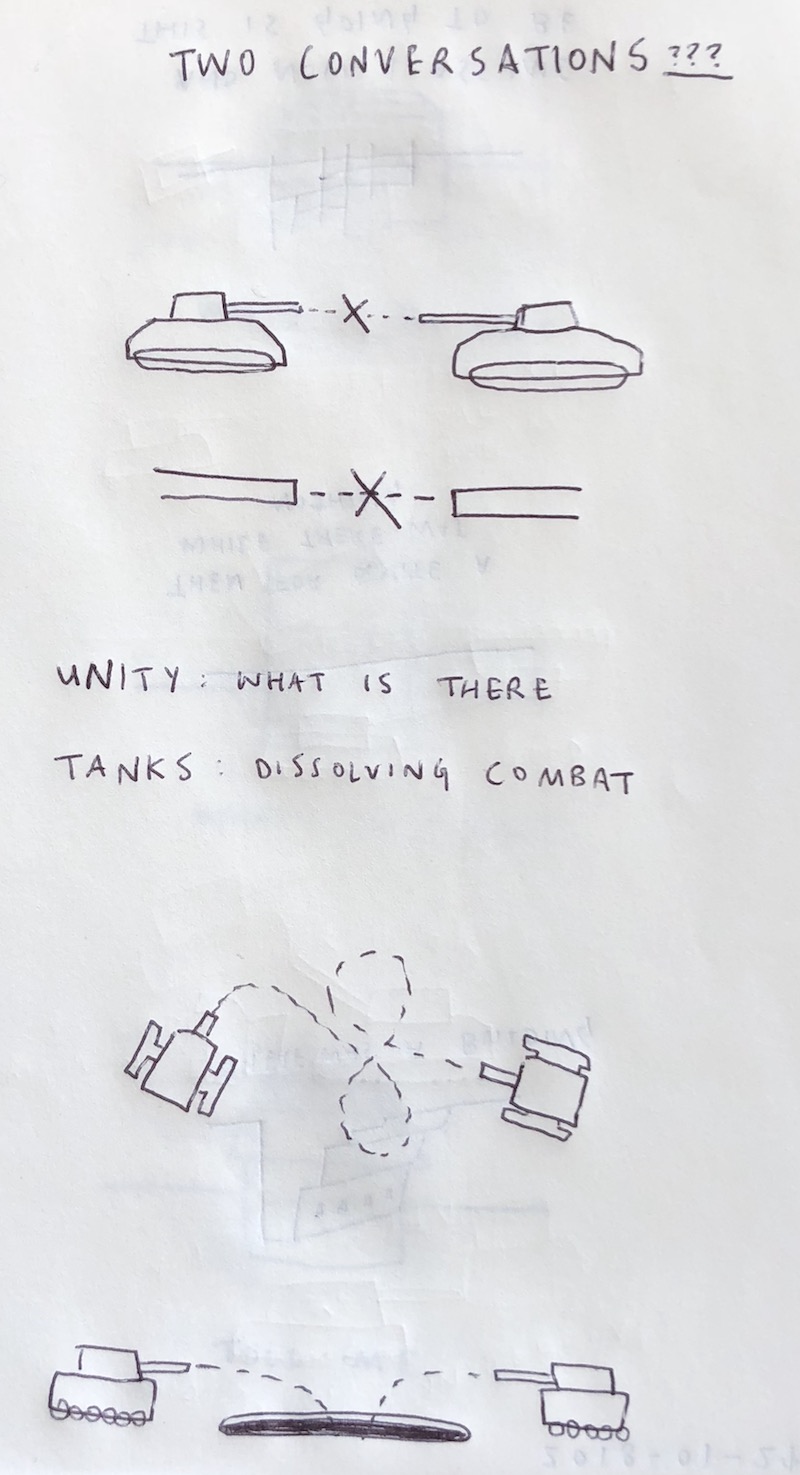 TWO CONVERSATIONS ???
UNITY: WHAT IS THERE
TANKS: DISSOLVING COMBAT